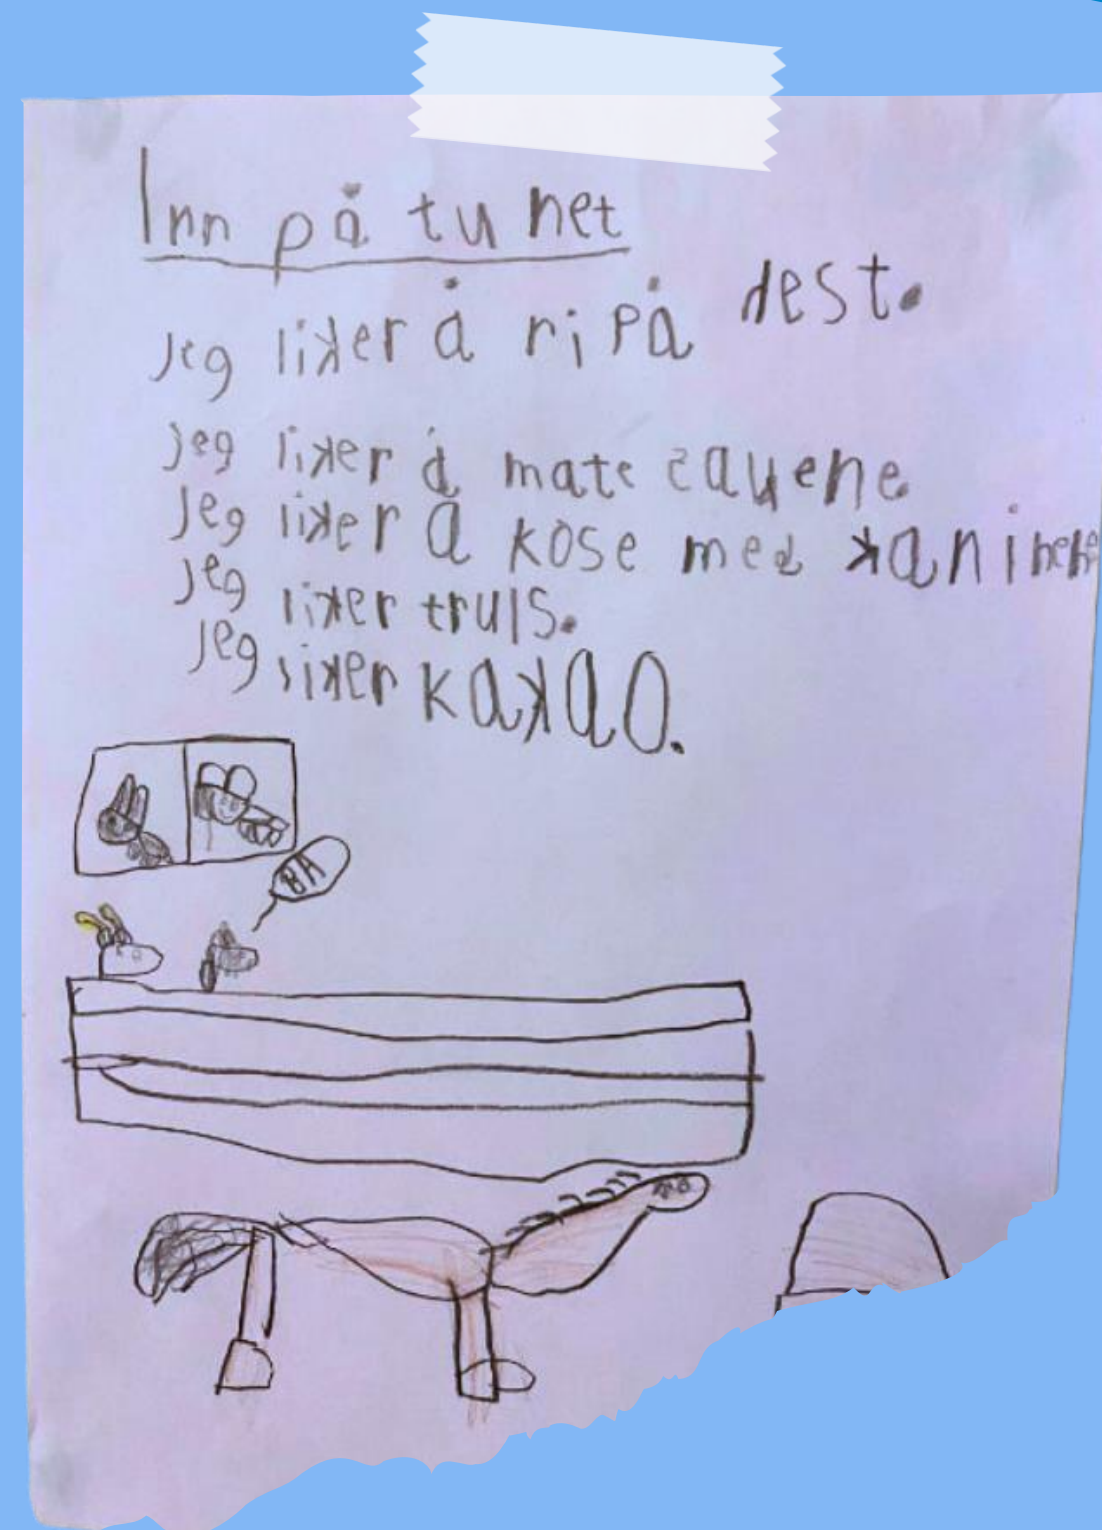 Inn på tunet
Jeg liker å ri på hest.
jeg liker å mate sauene.
Jeg liker å kose med kaninene
jeg liker truls.
Jeg liker kakao.
BÆ